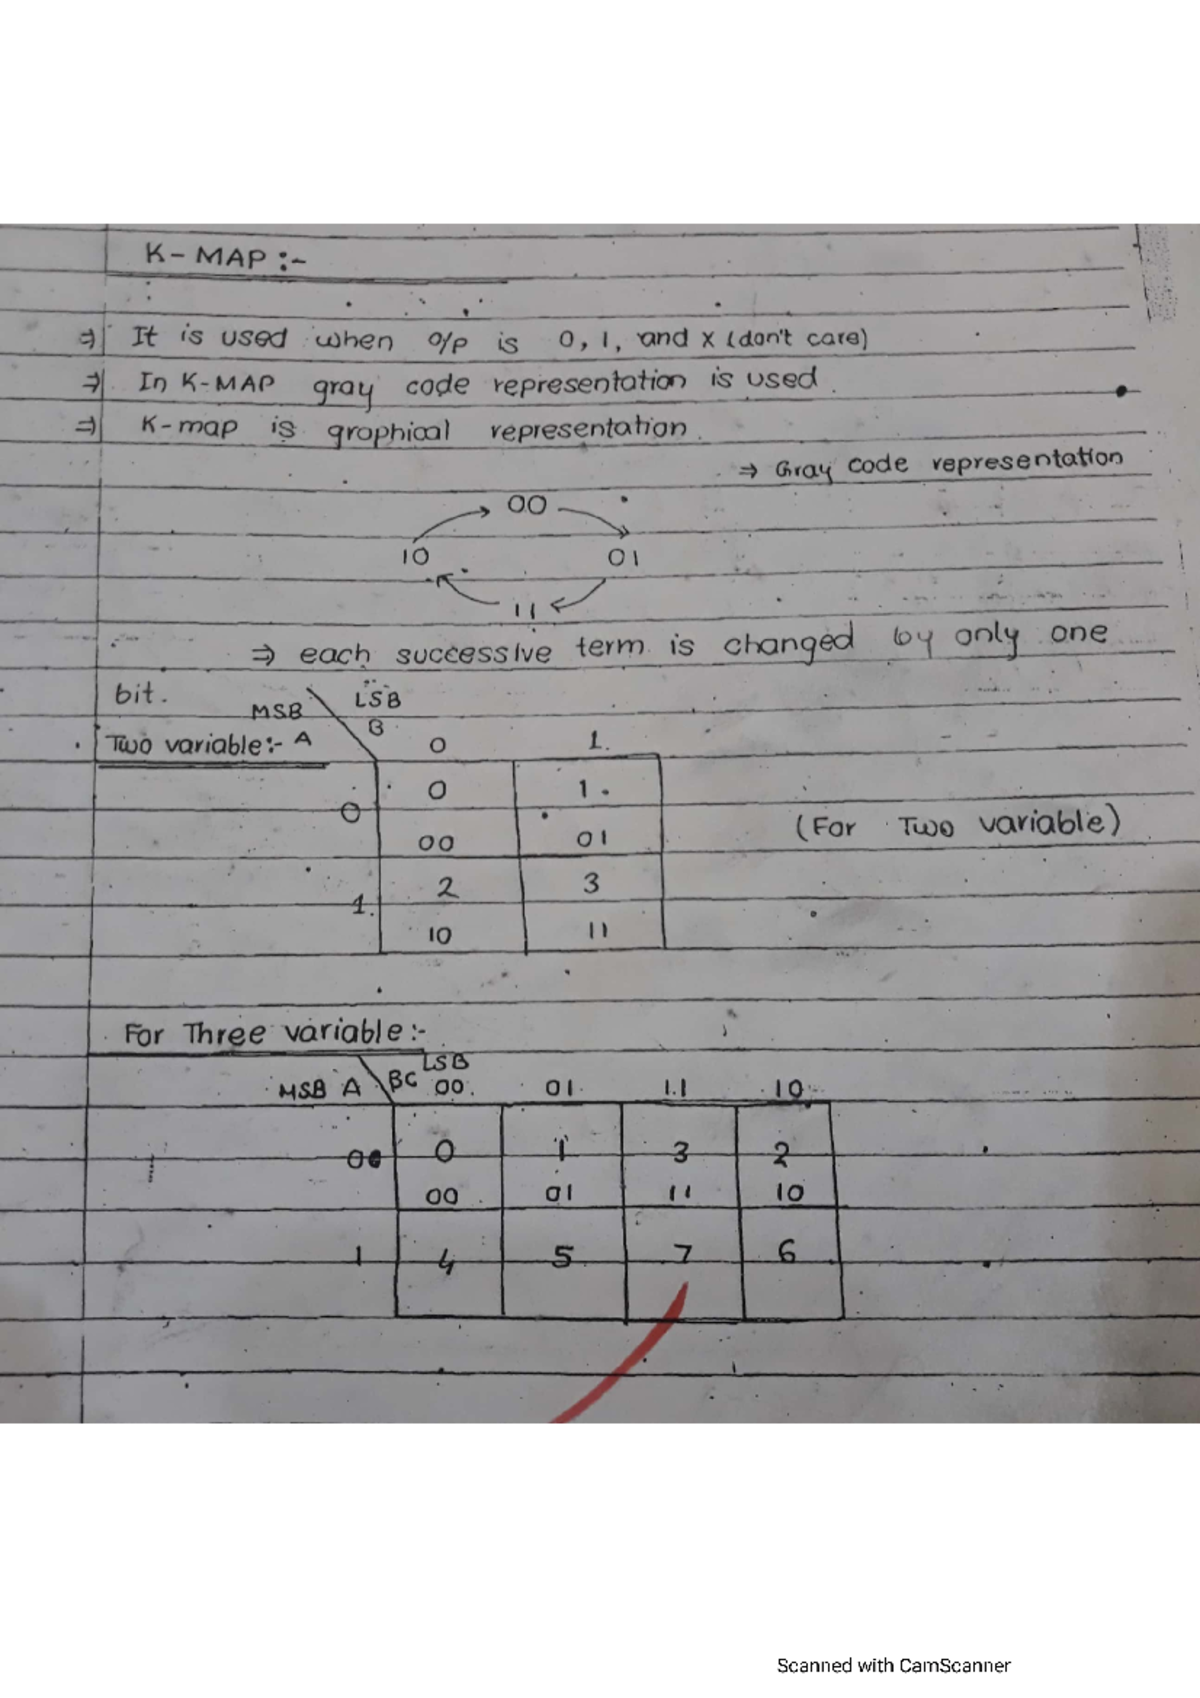 K-MAP :-
⇒ It is used when o/p is 0, 1, and x (don't care)
⇒ In K-MAP gray code representation is used.
⇒ K-map is graphical representation.
⇒ Gray code representation
00
10 01
11
⇒ each successive term is changed by only one
bit.
MSB LSB
Two variable:- A B 0 1.
0 1.
0
00 01
(For Two variable)
2 3
1.
10 11
For Three variable:-
LSB
MSB A BC 00. 01. 11 10
0 0 1 3 2
00 01 11 10
1 4 5 7 6
Scanned with CamScanner